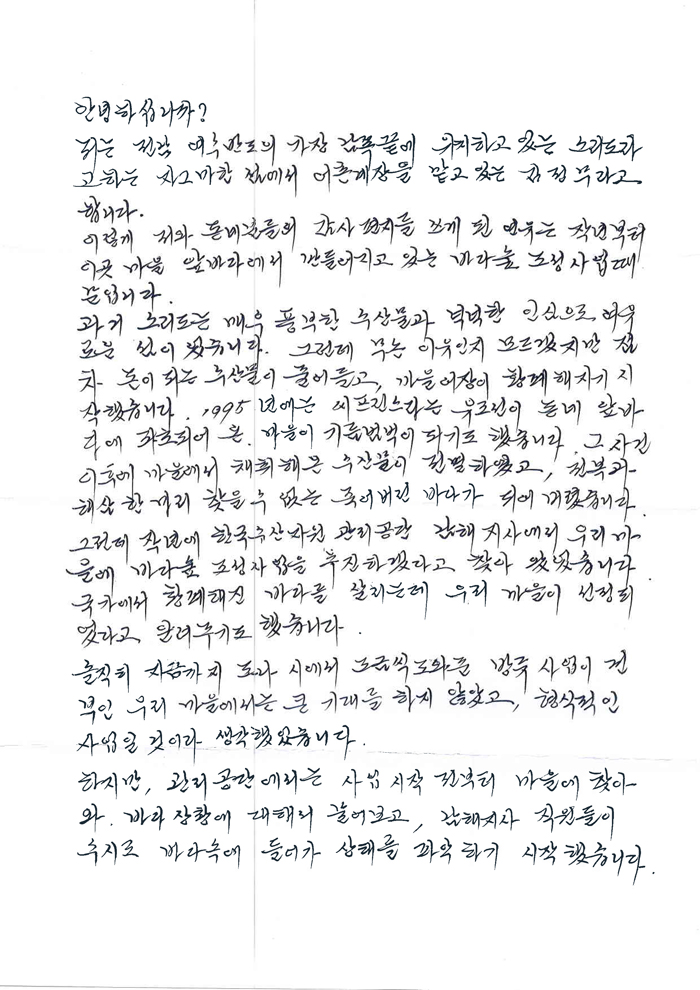 안녕하십니까?
저는 전남 여수반도의 가장 남쪽끝에 위치하고 있는 소리도라
고하는 자그마한 섬에서 어촌계장을 맡고 있는 김정무라고
합니다.
이렇게 저와 동네분들의 감사 편지를 쓰게 된 연유는 작년부터
이곳 마을 앞바다에서 만들어지고 있는 바다숲 조성사업때
문입니다.
과거 소리도는 매우 풍부한 수산물과 넉넉한 인심으로 여유
로운 섬이 였습니다. 그런데 무슨 이유인지 모르겠지만 점
차 돈이 되는 수산물이 줄어들고, 마을어장이 황폐해지기 시
작했습니다. 1995년에는 씨프린스라는 유조선이 동네 앞바
다에 좌초되어 온 마을이 기름범벅이 되기도 했습니다. 그 사건
이후에 마을에서 채취해온 수산물이 전멸하였고, 전복과
해삼 한마리 찾을 수 없는 죽어버린 바다가 되어 버렸습니다.
그런데 작년에 한국수산자원 관리공단 남해지사에서 우리 마
을에 바다숲 조성사업을 추진하겠다고 찾아 왔었습니다.
국가에서 황폐해진 바다를 살리는데 우리 마을이 선정되
었다고 알려주기도 했습니다.
솔직히 지금까지 도과 시에서 조금씩 도와준 방류 사업이 전
부인 우리 마을에서는 큰 기대를 하지 않았고, 형식적인
사업일 것이라 생각했었습니다.
하지만, 관리공단에서는 사업 시작 전부터 마을에 찾아
와 바다 상황에 대해서 물어보고, 남해지사 직원들이
수시로 바다속에 들어가 상태를 파악하기 시작했습니다.